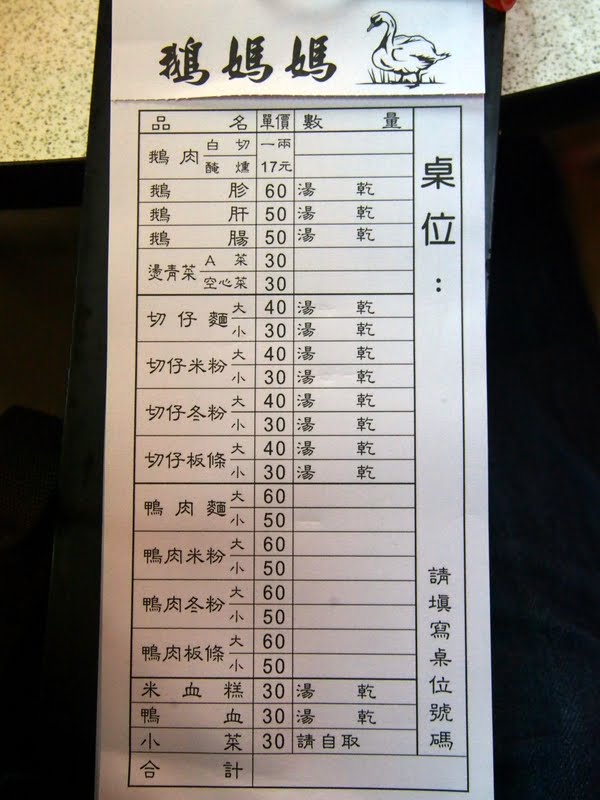 鵝媽媽
品名 單價 數量
鵝肉 白切 一兩
醃燻 17元
鵝胗 60 湯 乾
鵝肝 50 湯 乾
鵝腸 50 湯 乾
燙青菜 A菜 30
空心菜 30
切仔麵 大 40 湯 乾
小 30 湯 乾
切仔米粉 大 40 湯 乾
小 30 湯 乾
切仔冬粉 大 40 湯 乾
小 30 湯 乾
切仔板條 大 40 湯 乾
小 30 湯 乾
鴨肉麵 大 60
小 50
鴨肉米粉 大 60
小 50
鴨肉冬粉 大 60
小 50
鴨肉板條 大 60
小 50
米血糕 30 湯 乾
鴨血 30 湯 乾
小菜 30 請自取
合計
桌位:
請填寫桌位號碼